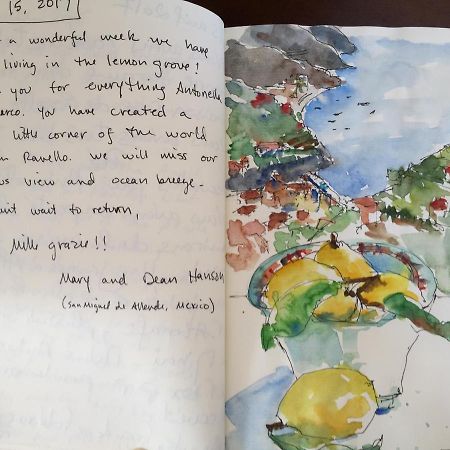 15, 2017
a wonderful week we have
living in the lemon grove!
you for everything Antonella
You have created a
little corner of the world
Ravello. We will miss our
view and ocean breeze -
wait to return,
Mille grazie!!
Mary and Dean Hansen
(San Miguel de Allende, Mexico)